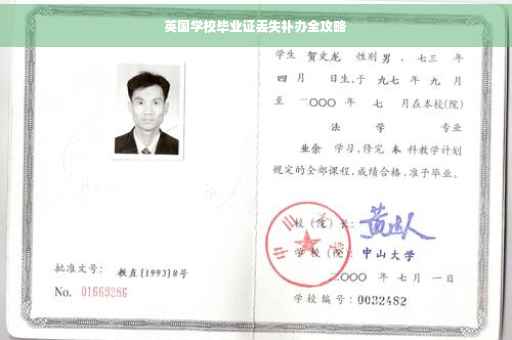 英国学校毕业证丢失补办全攻略
学生 贺文龙 性别 男 、七三 年
四 月 日生,于 九七 年 九 月
至 二〇〇〇 年 七 月在本校(院)
法 学 专业
业余 学习,修完 本 科教学计划
规定的全部课程,成绩合格,准予毕业。
校(院)长:
学校(院): 中山大学
批准文号: 教直[1993]8号
二〇〇〇 年 七 月 一 日
No. 01669286
学校编号: 0032482